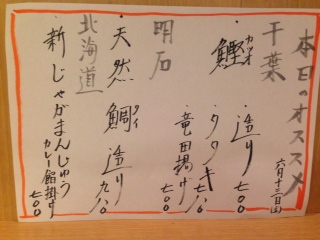 本日のオススメ
六月十三日(土)
千葉
鰹 カツオ
・造り 七〇〇
・タタキ 七八〇
・竜田揚げ 七〇〇
明石
・天然鯛 タイ 造り 九八〇
北海道
・新じゃがまんじゅう
カレー餡掛け 七〇〇